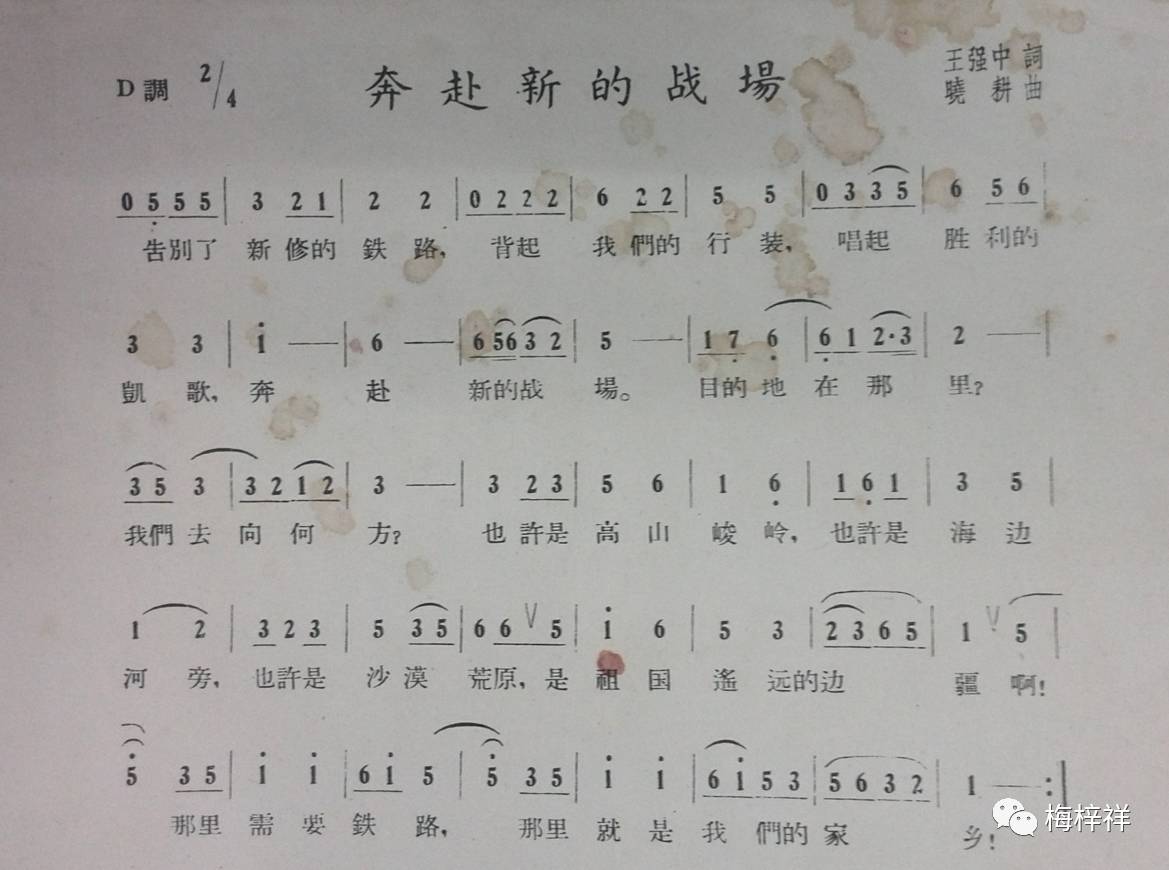 D調 2/4 奔赴新的战場 王强中 詞
曉 耕 曲
0 5 5 5 | 3 2 1 | 2 2 | 0 2 2 2 | 6 2 2 | 5 5 | 0 3 3 5 | 6 5 6 |
告別了 新 修的 鉄 路, 背起 我 們的 行 装, 唱起 胜 利的
3 3 | i — | 6 — | 6 56 3 2 | 5 — | 1 7 6 | 6 1 2·3 | 2 — |
凱 歌, 奔 赴 新的战 場。 目的 地 在 那 里?
3 5 3 | 3 2 1 2 | 3 — | 3 2 3 | 5 6 | 1 6 | 1 6 1 | 3 5 |
我們 去 向 何 方? 也 許是 高 山 峻 岭, 也許是 海 边
1 2 | 3 2 3 | 5 3 5 | 6 6 V 5 | i 6 | 5 3 | 2 3 6 5 | 1 V 5 |
河 旁, 也許是 沙 漠 荒原, 是 祖 国 遙 远的边 疆 啊!
5 3 5 | i i | 6 i 5 | 5 3 5 | i i | 6 i 5 3 | 5 6 3 2 | 1 — :|
那里 需 要 鉄 路, 那里 就 是 我 們的 家 乡!
梅梓祥